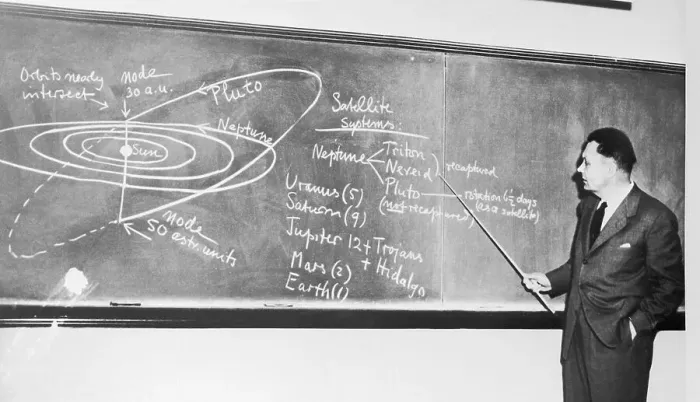 Orbits nearly
intersect
node
30 a.u.
Pluto
Neptune
Sun
node
50 astr. units
Satellite
Systems:
Neptune
Triton
Nereid
recaptured
Pluto
(not recaptured)
rotation 6½ days
(as a satellite)
Uranus (5)
Saturn (9)
Jupiter 12 + Trojans
+ Hidalgo
Mars (2)
Earth (1)